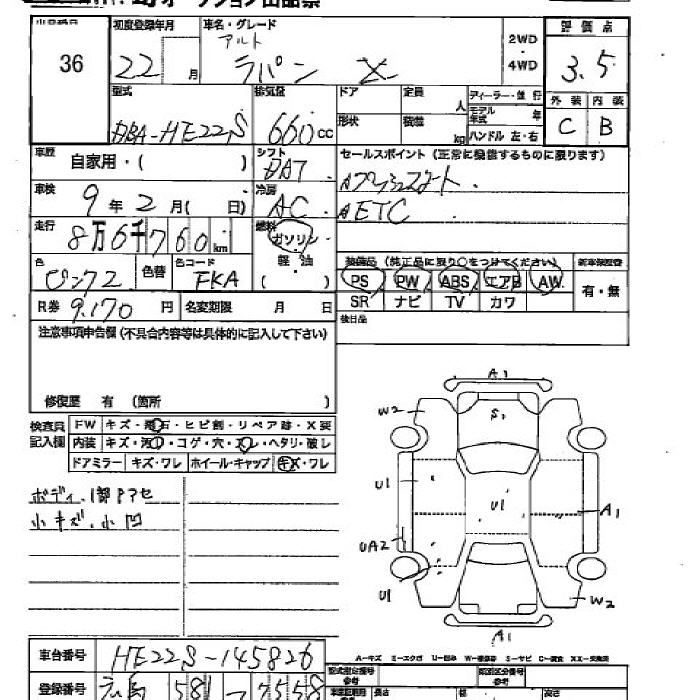 36
初度登録年月
22 月
車名・グレード
アルト
ラパン X
2WD
・
4WD
評価点
3.5
外装 内装
C B
型式
DBA-HE22S
排気量
660 cc
ドア
定員
人
形状
積載
kg
ディーラー・並行
モデル年式 年
ハンドル 左・右
車歴
自家用・( )
シフト
DAT
セールスポイント (正常に機能するものに限ります)
車検
9年2月( 日)
冷房
AC
ETC
走行
8万6千760km
燃料
ガソリン
軽油
( )
装備品 (純正品に限り○をつけてください)
PS PW ABS エアB AW
SR ナビ TV カワ
有・無
色
ピンク2
色替
色コード
FKA
R券 9,170 円
名変期限 月 日
後日品
注意事項申告欄 (不具合内容等は具体的に記入して下さい)
修復歴 有 (箇所 )
検査員
記入欄
FW キズ・飛石・ヒビ割・リペア跡・X要
内装 キズ・汚れ・コゲ・穴・スレ・ヘタリ・破レ
ドアミラー キズ・ワレ ホイール・キャップ キズ・ワレ
小キズ、小凹
A1
W2
S1
U1
U1
A1
UA2
U1
W2
A1
車台番号 HE22S-145826
登録番号 広島 581